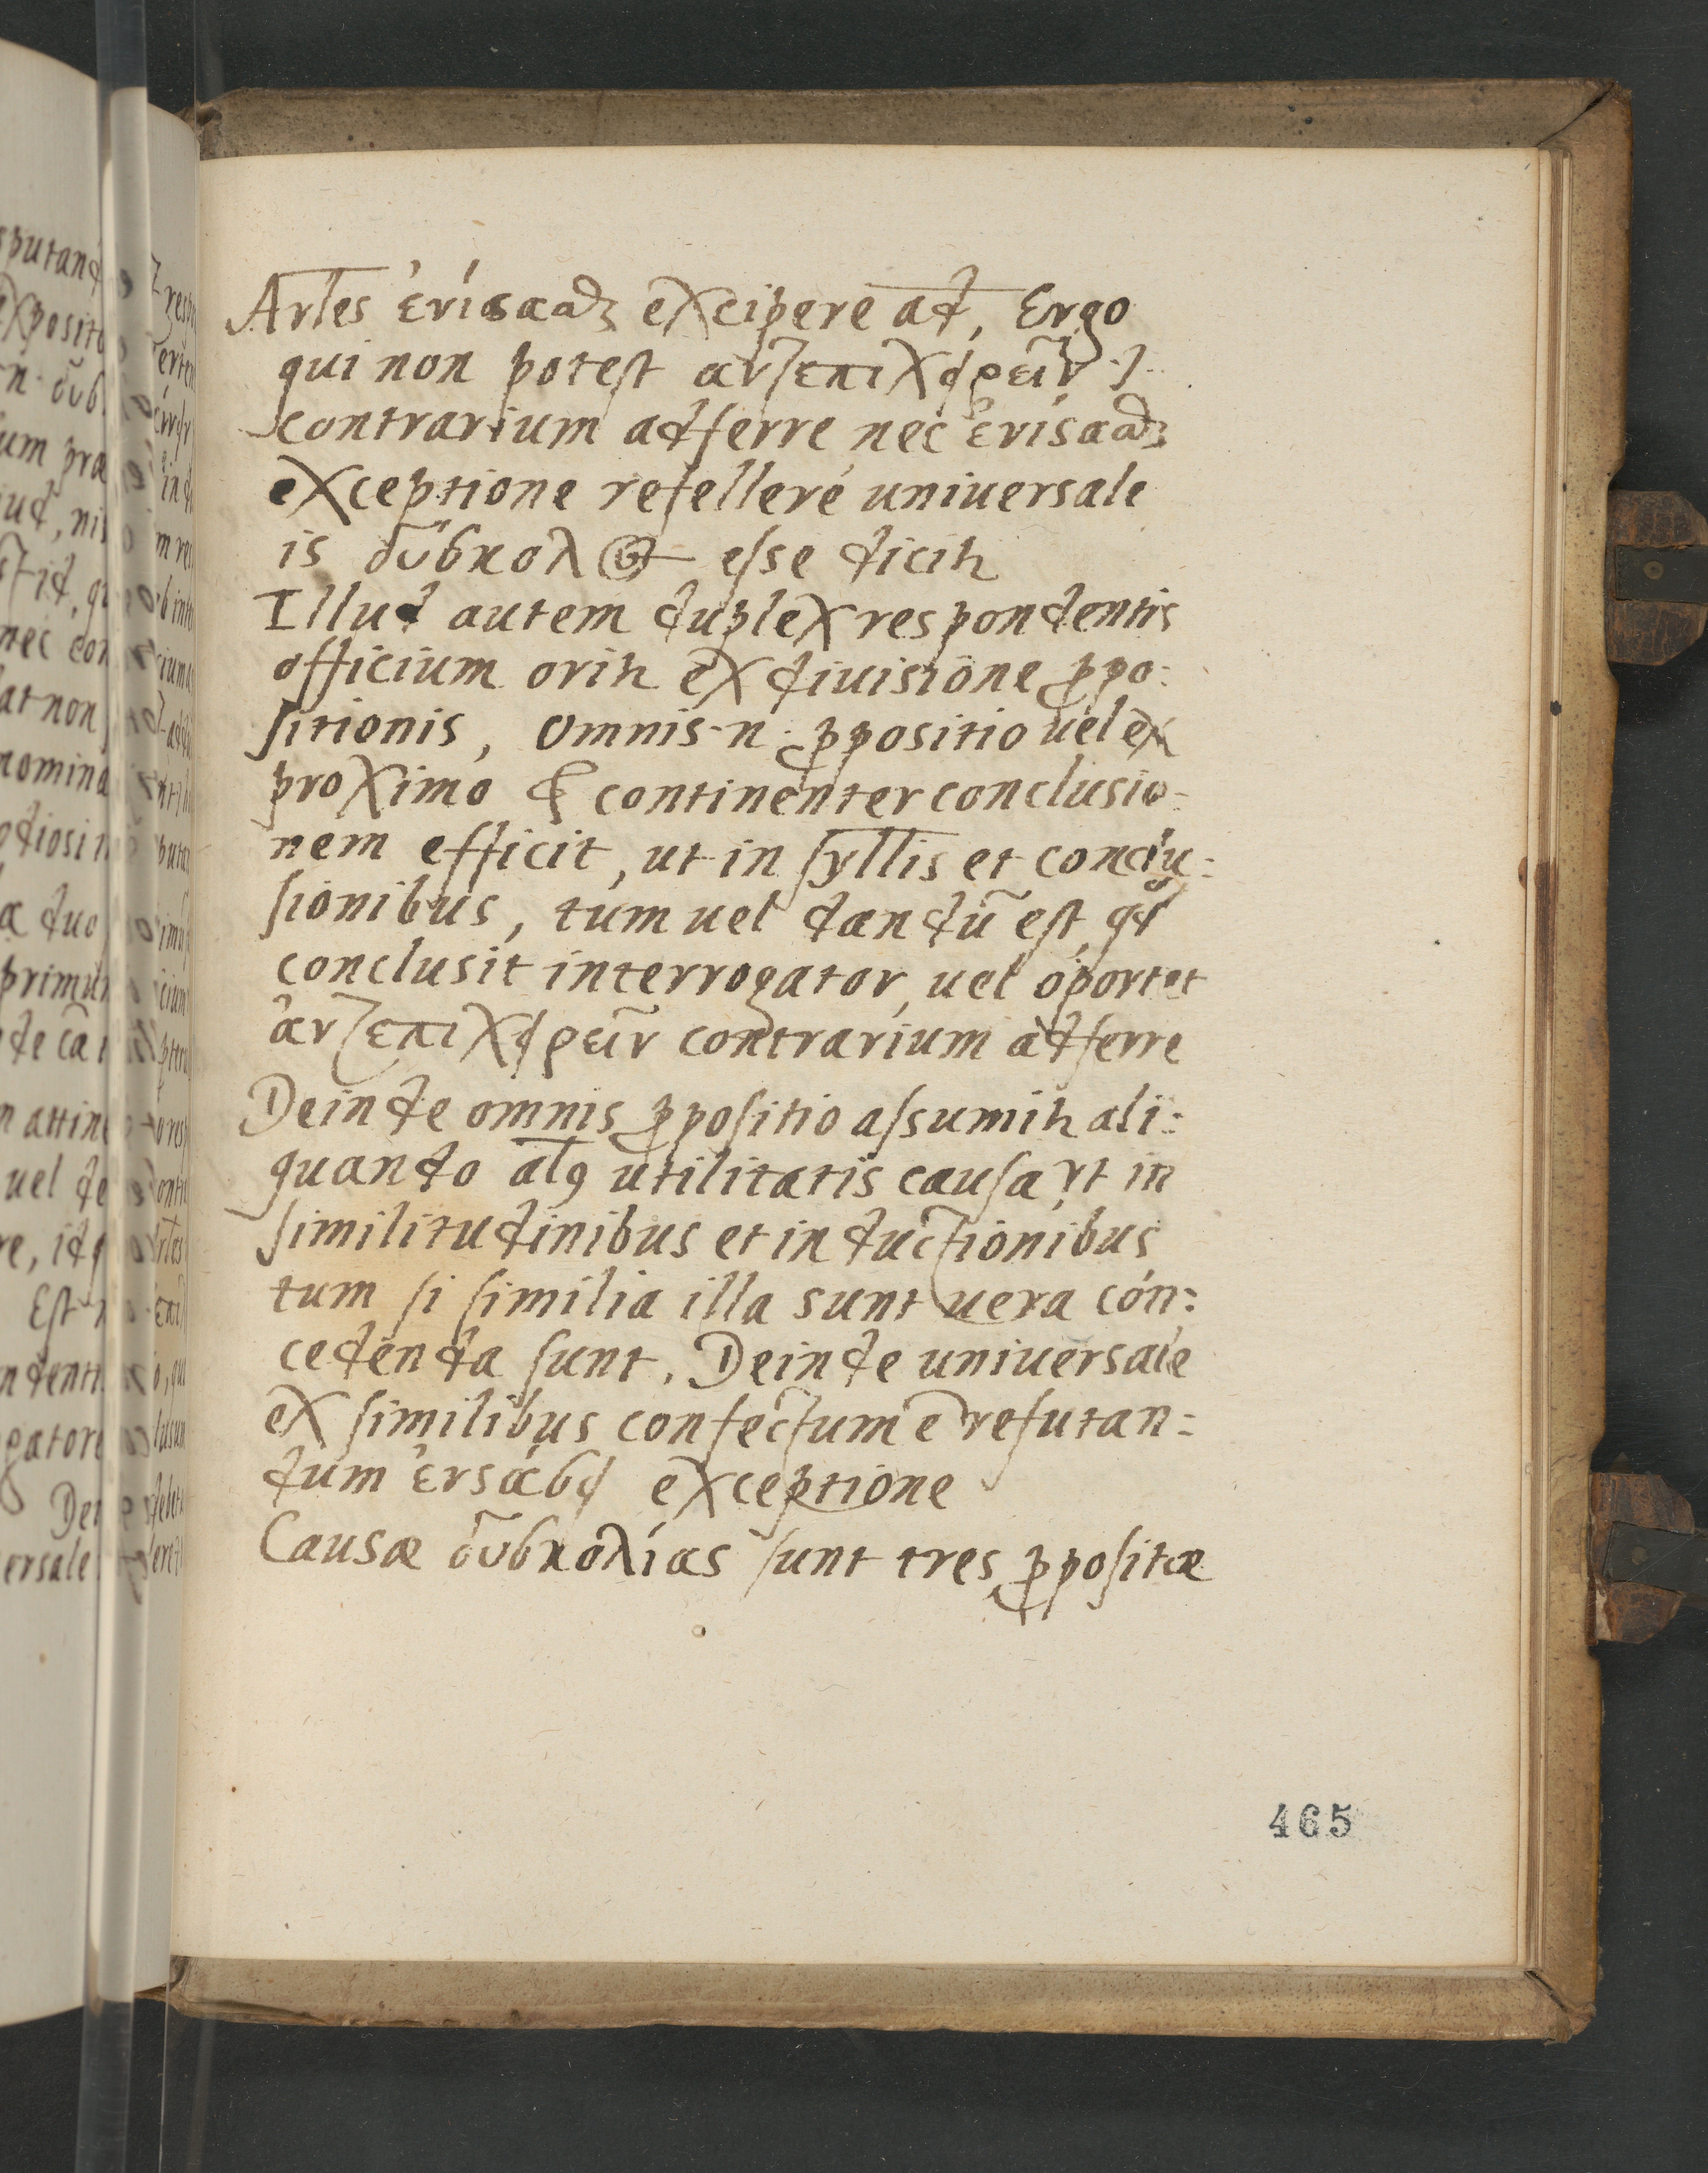 Ar̅l̅es ἐνίσασθαι excipere a̅d̅, Ergo
qui non potest αντεπιχειρεῖν .i.
contrarium adferre nec ἐνίσασθαι
exceptione refellere uniuersale
is δύσκολος esse dicit᷑
Illud autem duplex respondentis
officium orit᷑ ex diuisione ꝓpo:
sitionis, omnis .n. ꝓpositio uel ex
proximo & continenter conclusio:
nem efficit, ut in syl̅l̅is et conclu:
sionibus, tum uel dandū est, qd
conclusit interrogator, uel oportet
ἀντεπιχειρεῖν contrarium adferre
Deinde omnis ꝓpositio assumit᷑ ali:
quando al̅ꝯ utilitatis causa ut in
similitudinibus et inductionibus
tum si similia illa sunt uera con:
cedenda sunt. Deinde uniuersale
ex similibus confectum ē refutan:
dum ἐνσάσει exceptione
Causæ δυσκολίας sunt tres ꝓpositæ
465